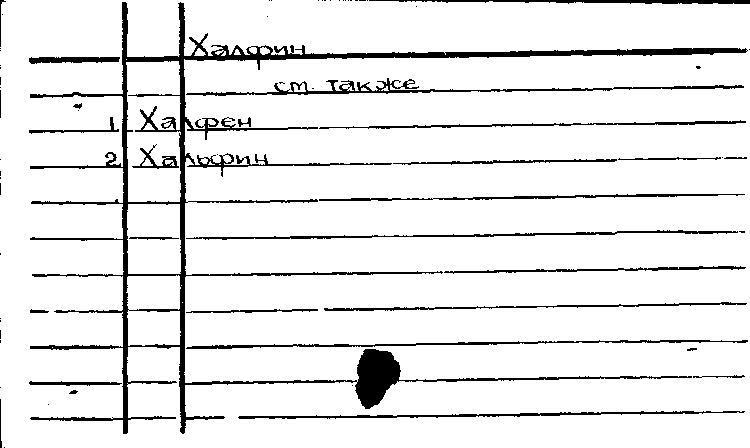 Халфин
см. также
1. Халфен
2. Хальфин